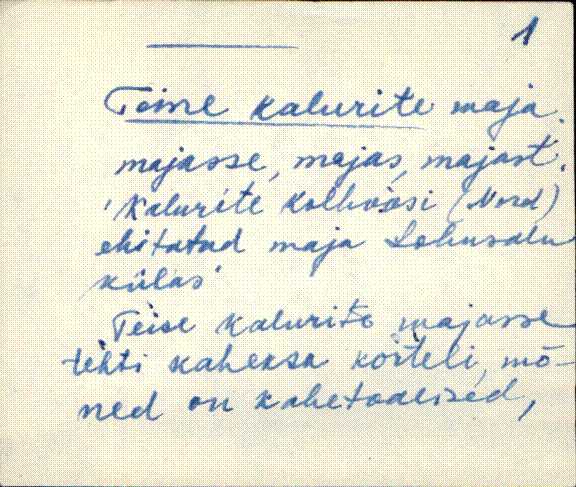 1
Teine kalurite maja
majasse, majas, majast.
'Kalurite kolhoosi (Nord)
ehitatud maja Lohusalu
külas'
Teise kalurite majasse
tehti kaheksa korteli, mõ-
ned on kahetoalised,